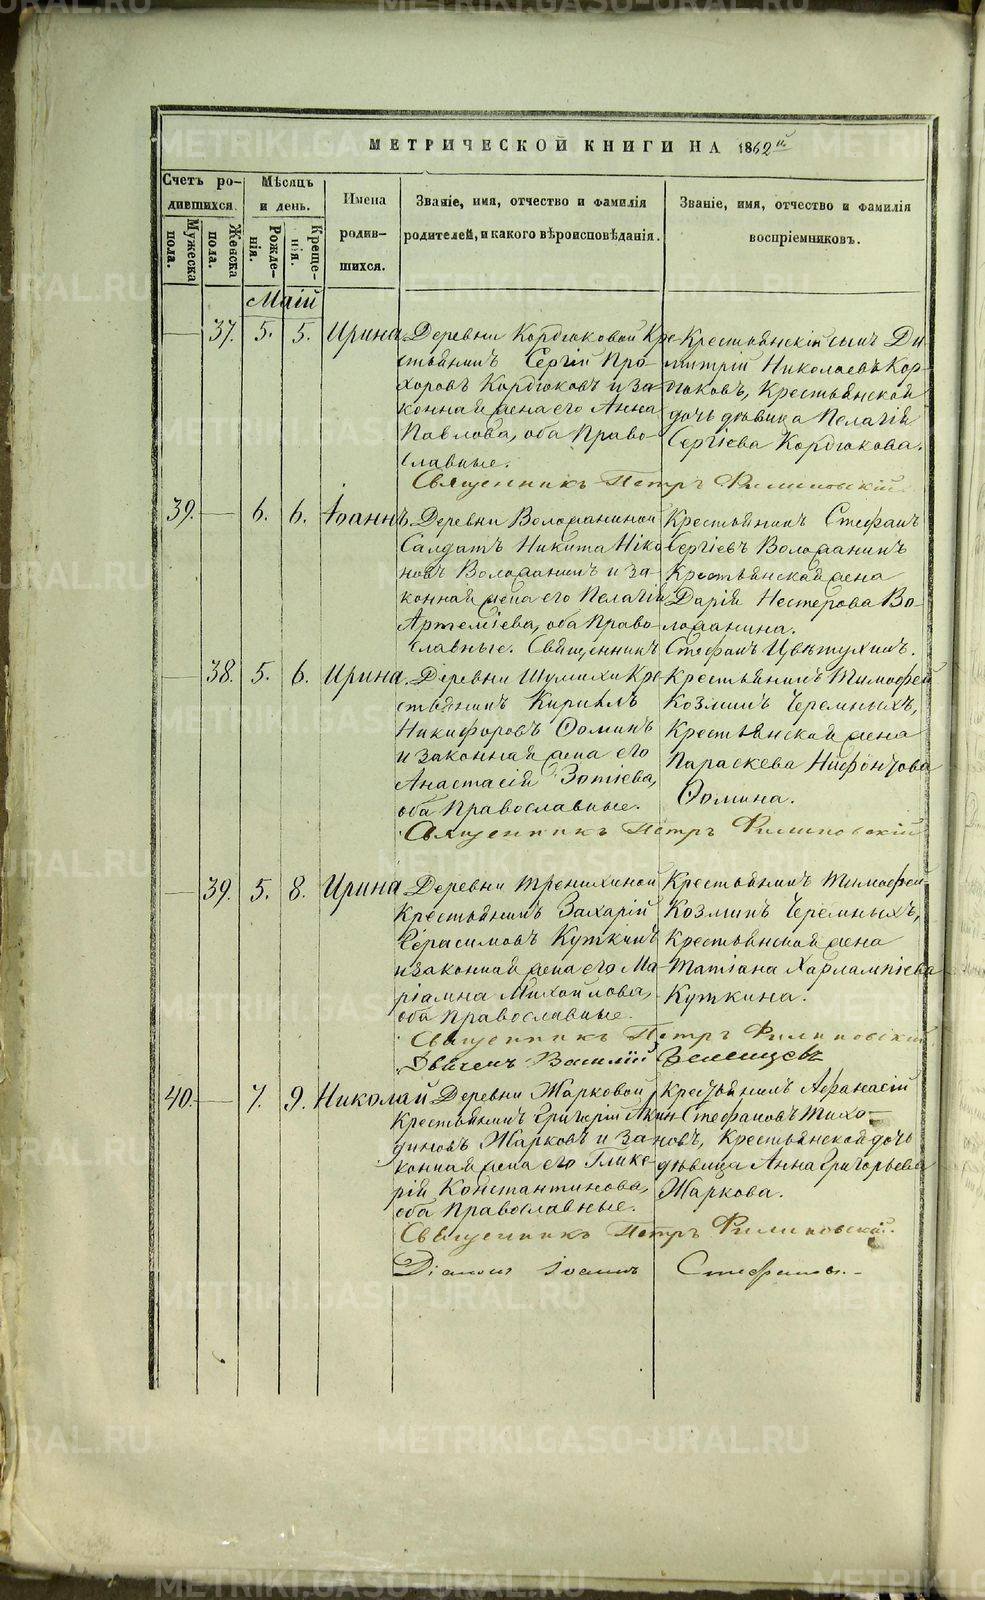 МЕТРИЧЕСКОЙ КНИГИ НА 1862й
Счетъ родившихся.
Мужеска пола.
Женска пола.
Мѣсяцъ и день.
Рожденія.
Крещенія.
Имена родившихся.
Званіе, имя, отчество и фамилія родителей, и какого вѣроисповѣданія.
Званіе, имя, отчество и фамилія воспріемниковъ.
Маій
— 37. 5. 5. Ирина.
Деревни Кордюковой Кре-
стьянинъ Сергій Про-
хоровъ Кордюковъ и за-
конная жена его Анна
Павлова, оба Право-
славные.
Крестьянскій сынъ Ди-
митрій Николаевъ Кор-
дюковъ, Крестьянской
дочь дѣвица Пелагія
Сергіева Кордюкова.
Священникъ Петръ Филиповскій
39. — 6. 6. Іоаннъ.
Деревни Воложаниной
Салдатъ Никита
новъ Воложанинъ и за-
конная жена его Пелагія
Артеміева, оба Право-
славные.
Крестьянинъ Стефанъ
Сергіевъ Воложанинъ
Крестьянская жена
Дарія Нестерова Во-
ложанина.
Священникъ Стефанъ Цвѣтухинъ.
— 38. 5. 6. Ирина.
Деревни Шумихи Кре-
стьянинъ Кирилъ
Никифоровъ Ѳоминъ
и законная жена его
Анастасія Зотіева,
оба Православные.
Крестьянинъ Тимофей
Козминъ Черемныхъ,
Крестьянская жена
Параскева Нифонтова
Ѳомина.
Священникъ Петръ Филиповскій
— 39. 5. 8. Ирина
Деревни Тренихиной
Крестьянинъ Захарій
Герасимовъ Куткинъ
и законная жена его Ма-
ріамна Михайлова,
оба Православные.
Крестьянинъ Тимофей
Козминъ Черемныхъ,
Крестьянская жена
Татіана Харлампіева
Куткина.
Священникъ Петръ Филиповскій
Василій
40. — 7. 9. Николай
Деревни Жарковой
Крестьянинъ Григорій Акин-
диновъ Жарковъ и за-
конная жена его Глике-
рія Константинова,
оба Православные.
Крестьянинъ Афанасій
Стефановъ Тихо-
новъ, Крестьянской дочь
дѣвица Анна Григорьева
Жаркова.
Священникъ Петръ Филиповскій.
Діаконъ Іоаннъ Стефановъ.
METRIKI.GASO-URAL.RU